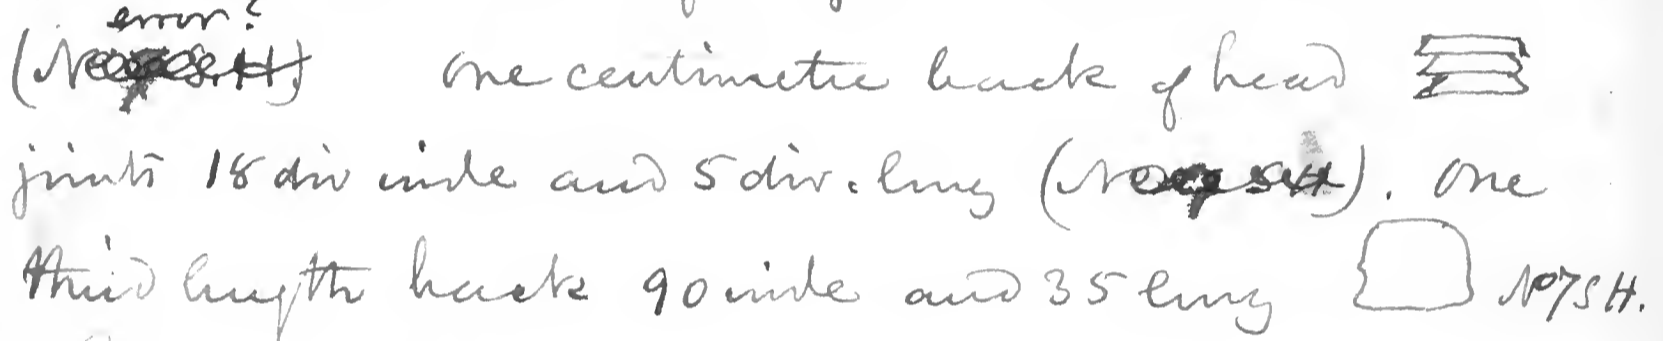 error?
( ) One centimetre back of head
joints 18 div wide and 5 div. long ( ). One
third length back 90 wide and 35 long No 7 S H.